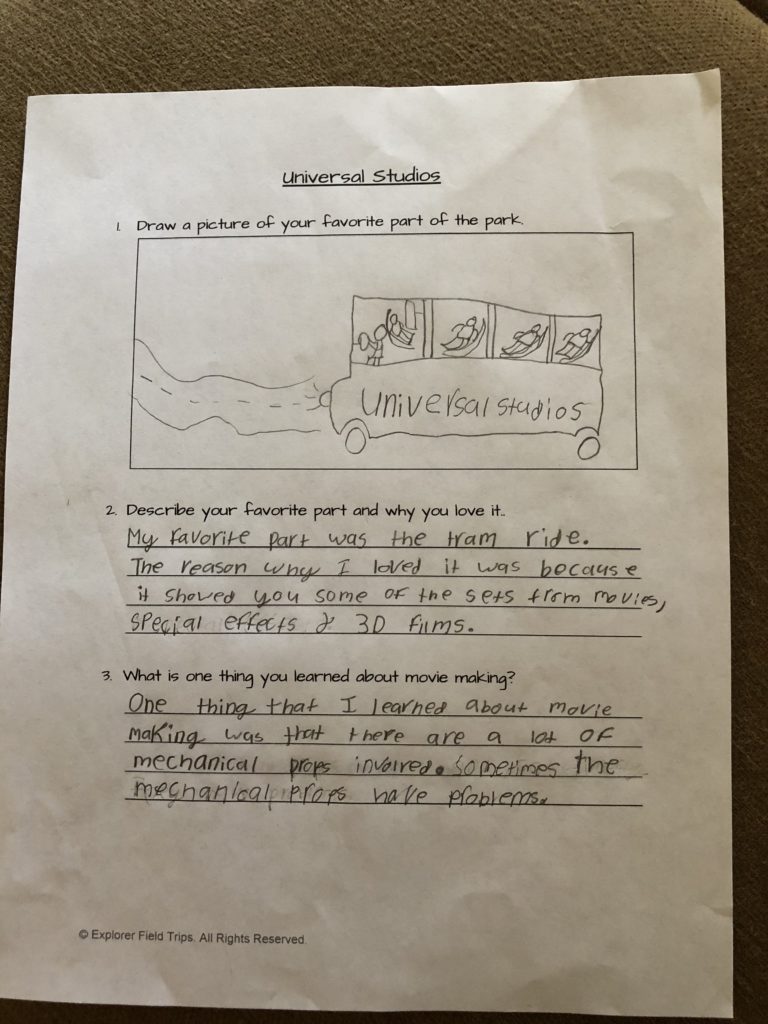 Universal Studios
1. Draw a picture of your favorite part of the park.
universal studios
2. Describe your favorite part and why you love it..
My favorite part was the tram ride.
The reason why I loved it was because
it showed you some of the sets from movies,
special effects & 3D films.
3. What is one thing you learned about movie making?
One thing that I learned about movie
making was that there are a lot of
mechanical props involved. sometimes the
mechanical props have problems.
© Explorer Field Trips. All Rights Reserved.